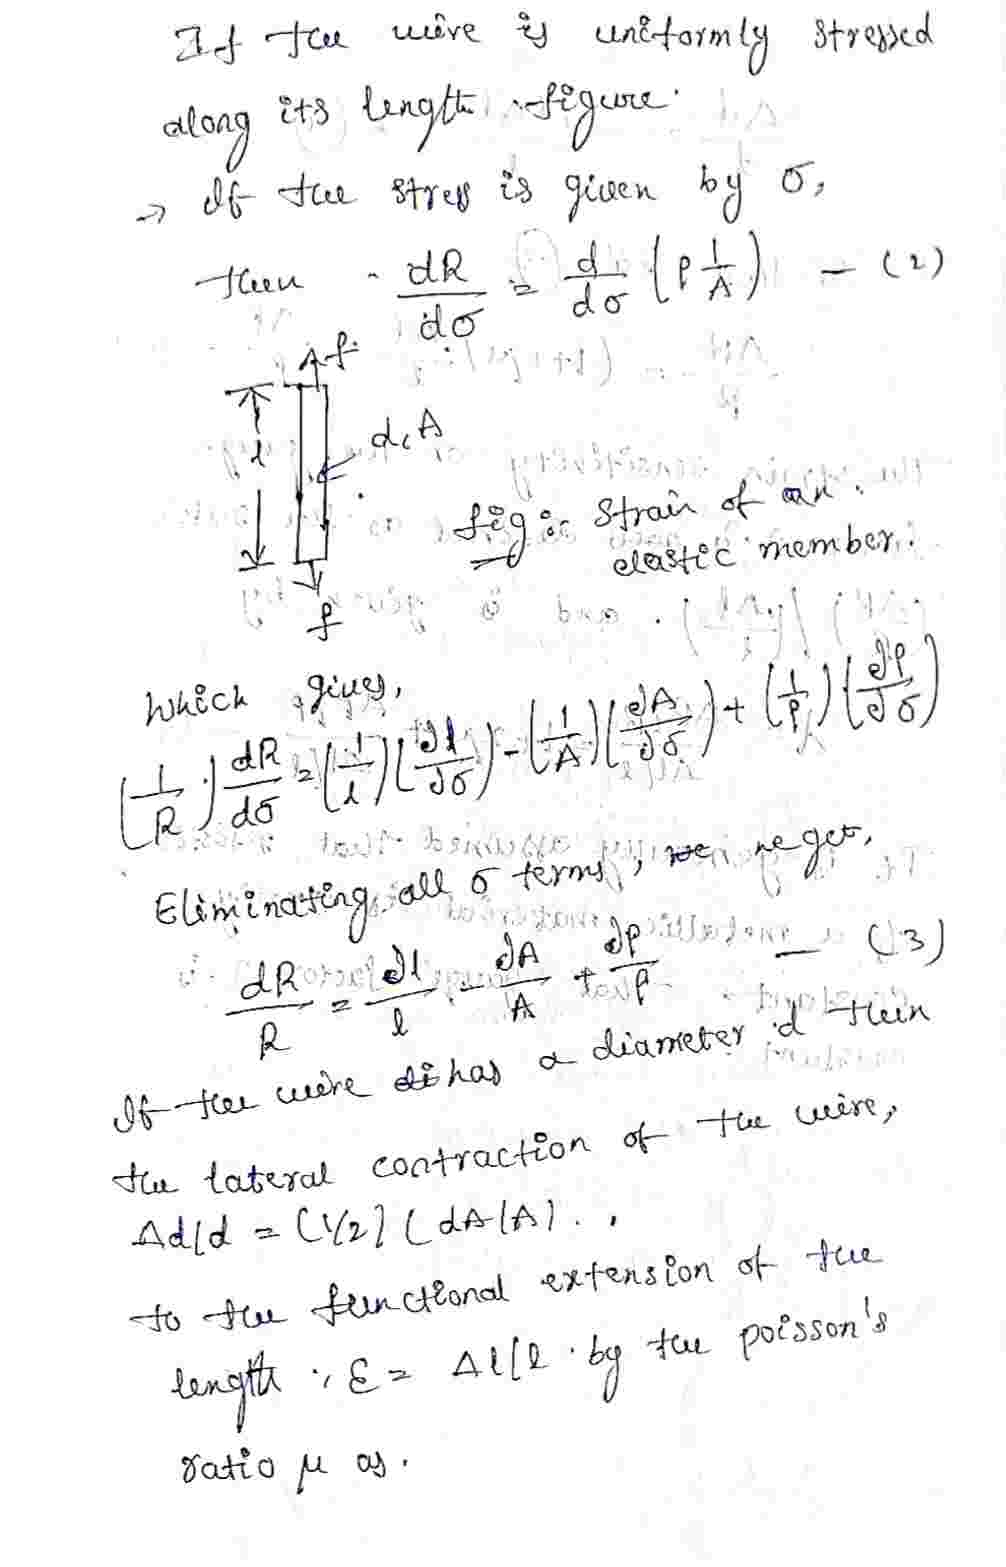 If the wire is uniformly stressed
along its length figure.
→ If the stress is given by σ,
then dR/dσ = d/dσ (ρ 1/A) - (2)
f
l
d, A
f
fig: Strain of an
elastic member.
Which gives,
(1/R) dR/dσ = (1/l)(∂l/∂σ) - (1/A)(∂A/∂σ) + (1/ρ)(∂ρ/∂σ)
Eliminating all σ terms, we get,
dR/R = ∂l/l - ∂A/A + ∂ρ/ρ - (3)
If the wire has a diameter d then
the lateral contraction of the wire,
Δd/d = (1/2) (dA/A).
to the functional extension of the
length, ε = Δl/l by the poisson's
ratio μ as.